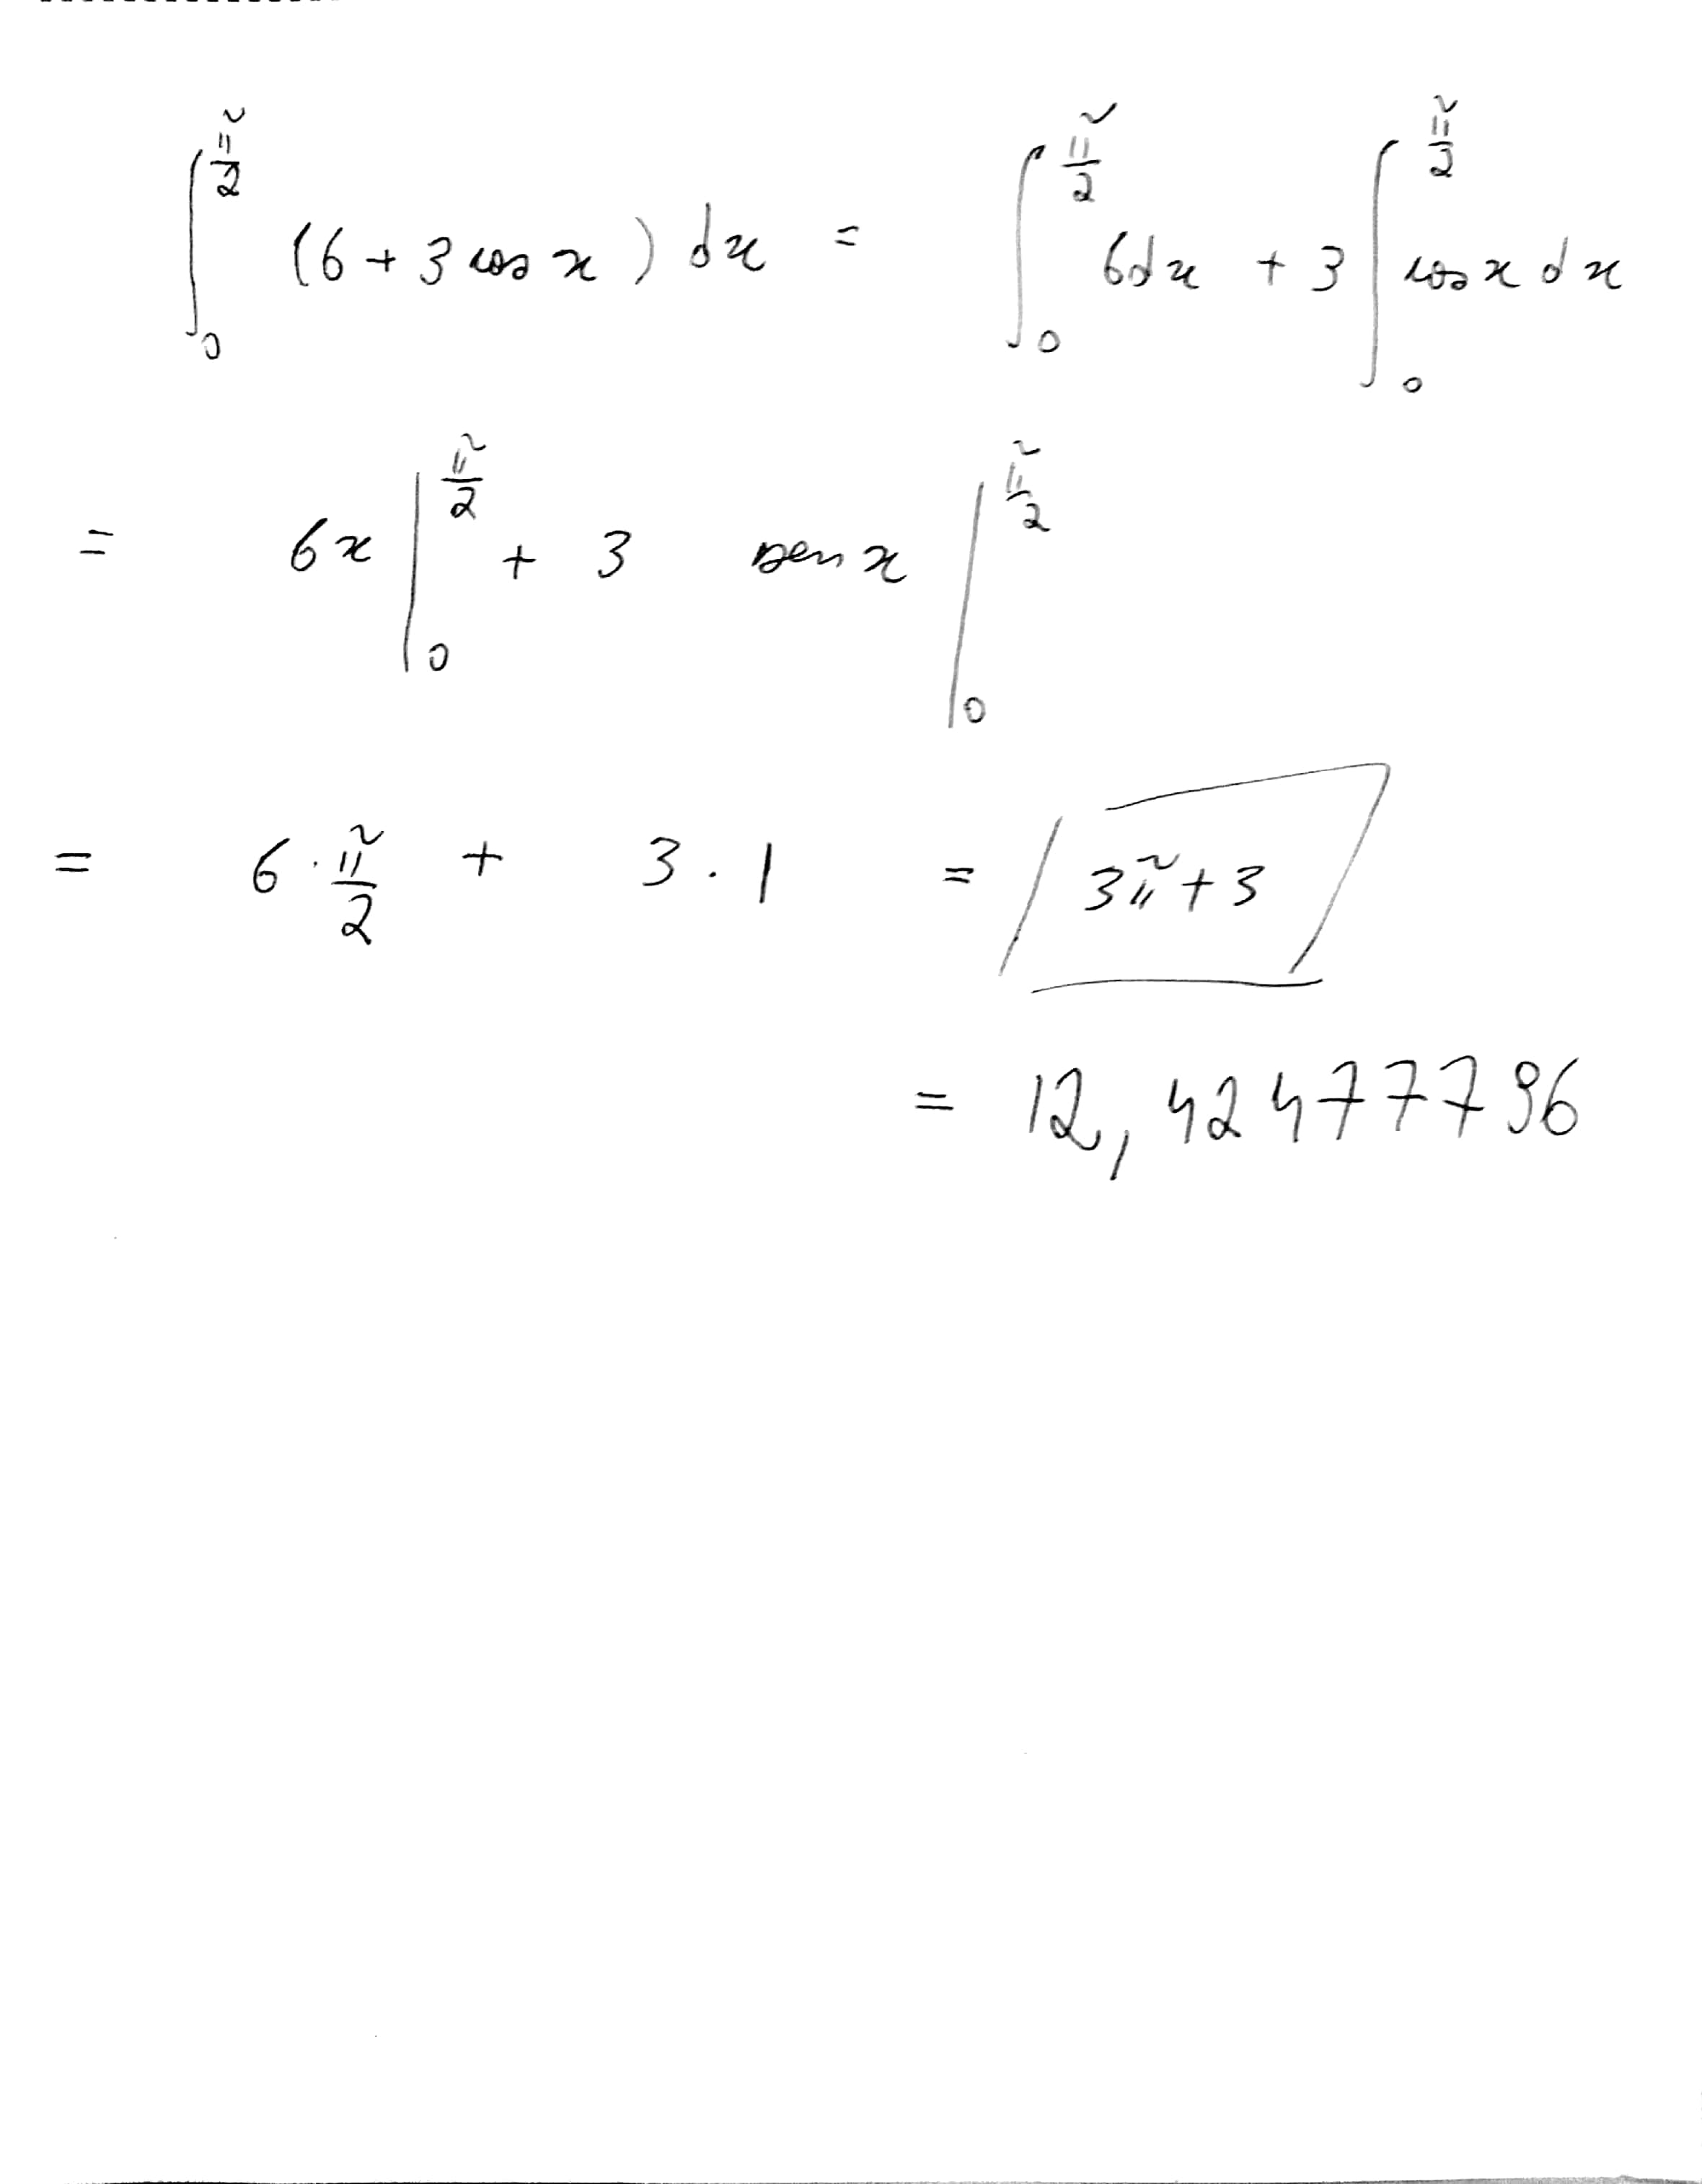 ∫₀^(π/2) (6 + 3 cos x) dx = ∫₀^(π/2) 6dx + 3 ∫₀^(π/2) cos x dx
= 6x |₀^(π/2) + 3 sen x |₀^(π/2)
= 6 · π/2 + 3 . 1 = 3π + 3
= 12,42477796